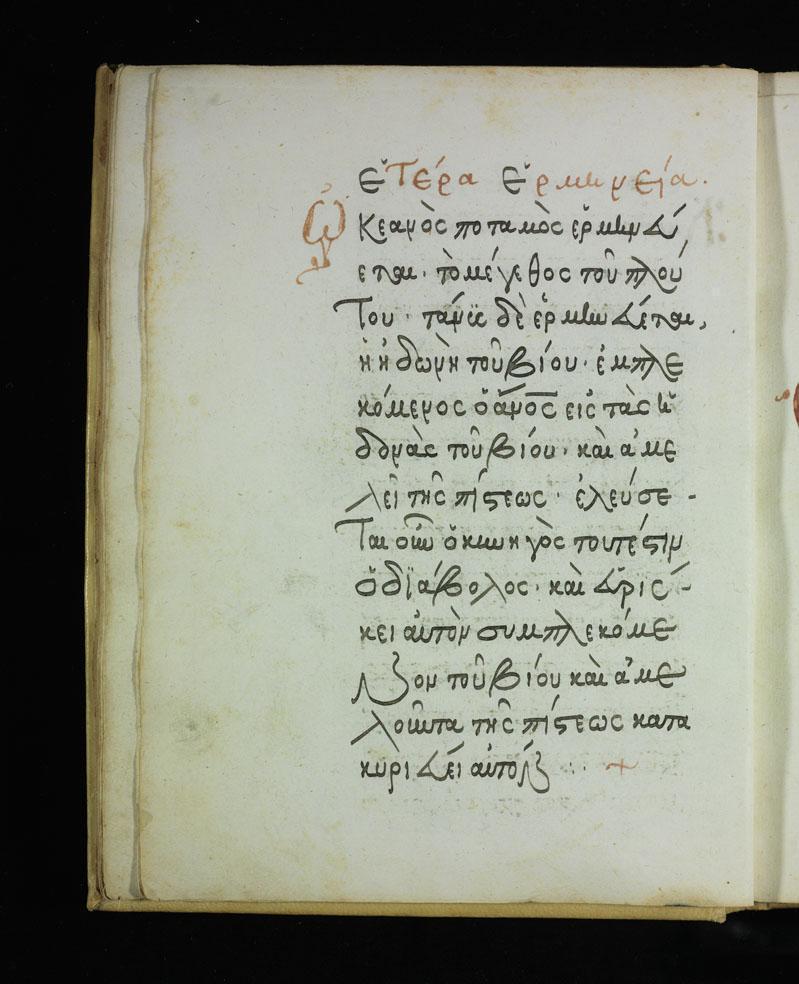 ἑτέρα ἑρμηνεία.
Ὠκεανὸς ποταμὸς ἑρμηνεύ
εται· τὸ μέγεθος τοῦ πλού
του· τάνϊς δὲ ἑρμηνεύεται,
ἡ ἡδωνὴ τοῦ βίου· ἐμπλε
κόμενος ὁ ἄνος εἰς τὰς ἡ
δονὰς τοῦ βίου· καὶ ἀμε
λεῖ τῆς πίστεως· ἐλεύσε -
ται οὖν ὁ κυνηγὸς τουτέστιν
ὁ δϊάβολος· καὶ εὑρίσ -
κει αὐτὸν συμπλεκόμε
νον τοῦ βίου καὶ ἀμε
λοῦντα τῆς πίστεως κατα
κυριεύει αὐτόν ··· +